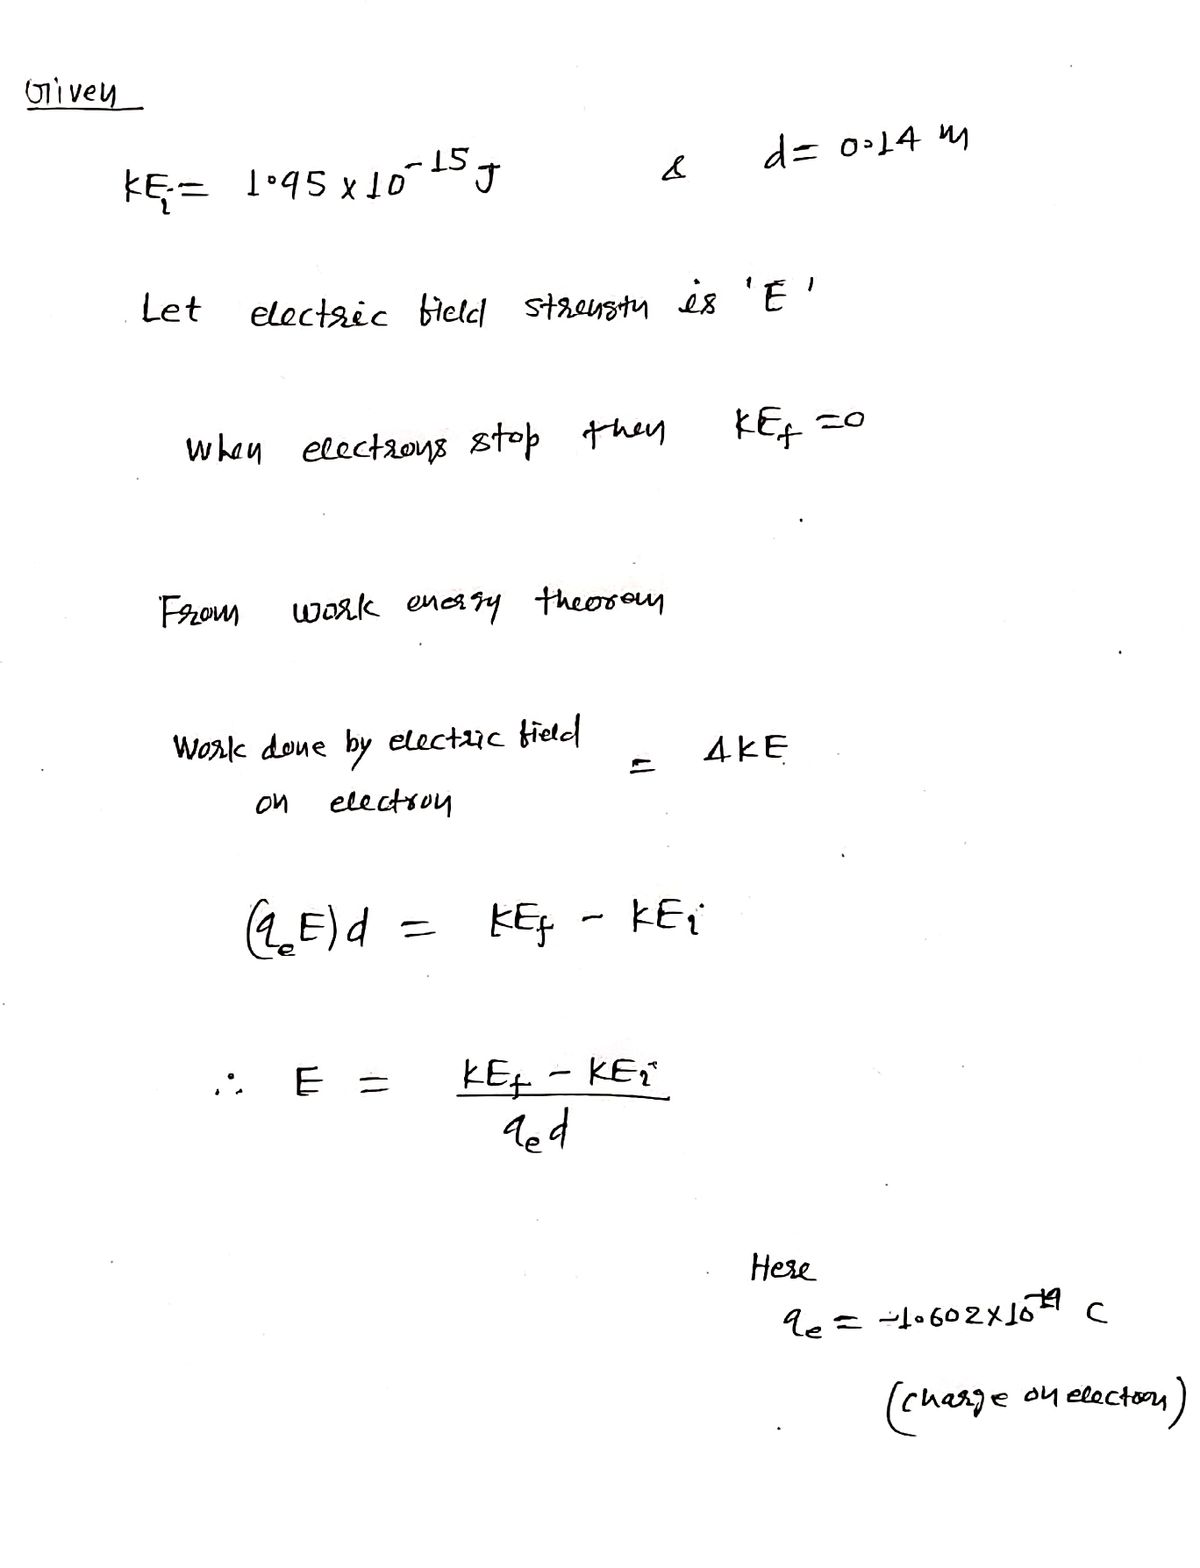 Given
KEi = 1.95 × 10^-15 J & d = 0.14 m
Let electric field strength is 'E'
When electrons stop then KEf = 0
From work energy theorem
Work done by electric field on electron = ΔKE
(qeE)d = KEf - KEi
∴ E = (KEf - KEi) / (qed)
Here
qe = -1.602×10^-19 C
(charge on electron)